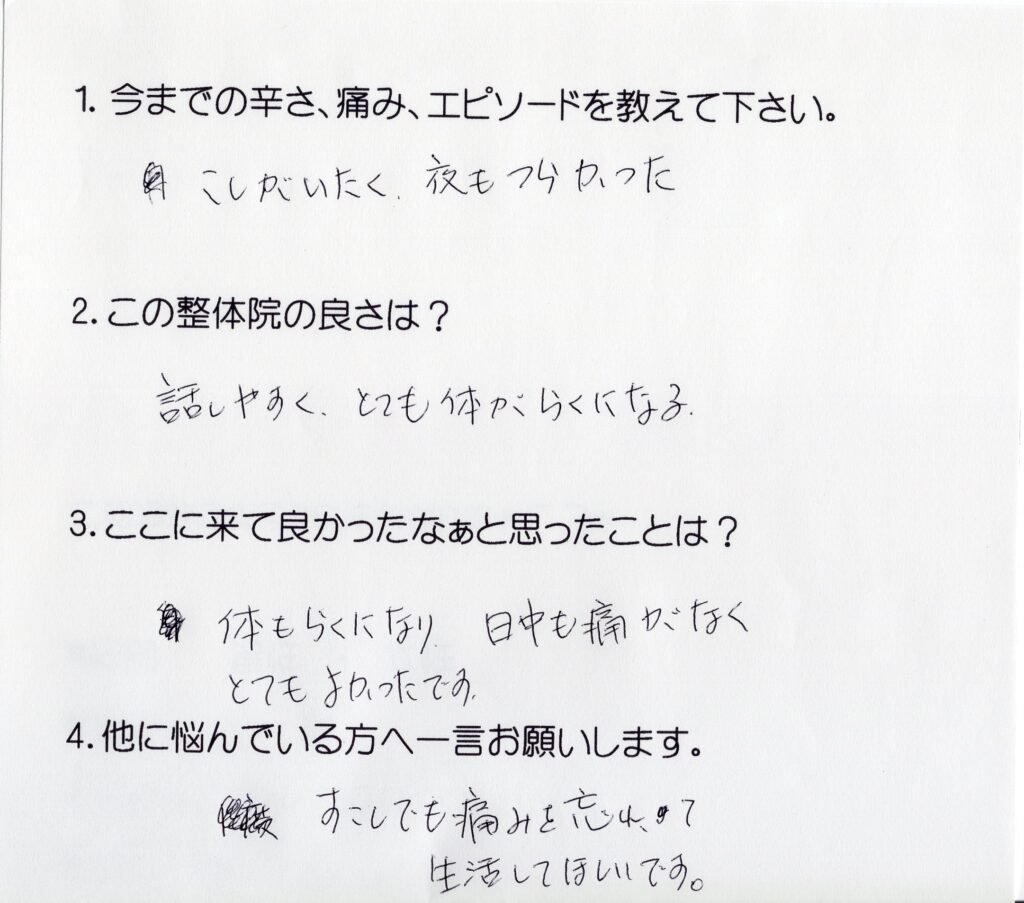 1. 今までの辛さ、痛み、エピソードを教えて下さい。
こしがいたく、夜もつらかった
2. この整体院の良さは？
話しやすく、とても体がらくになる。
3. ここに来て良かったなぁと思ったことは？
体もらくになり、日中も痛がなく
とてもよかったです。
4. 他に悩んでいる方へ一言お願いします。
すこしでも痛みを忘れ、て
生活してほしいです。